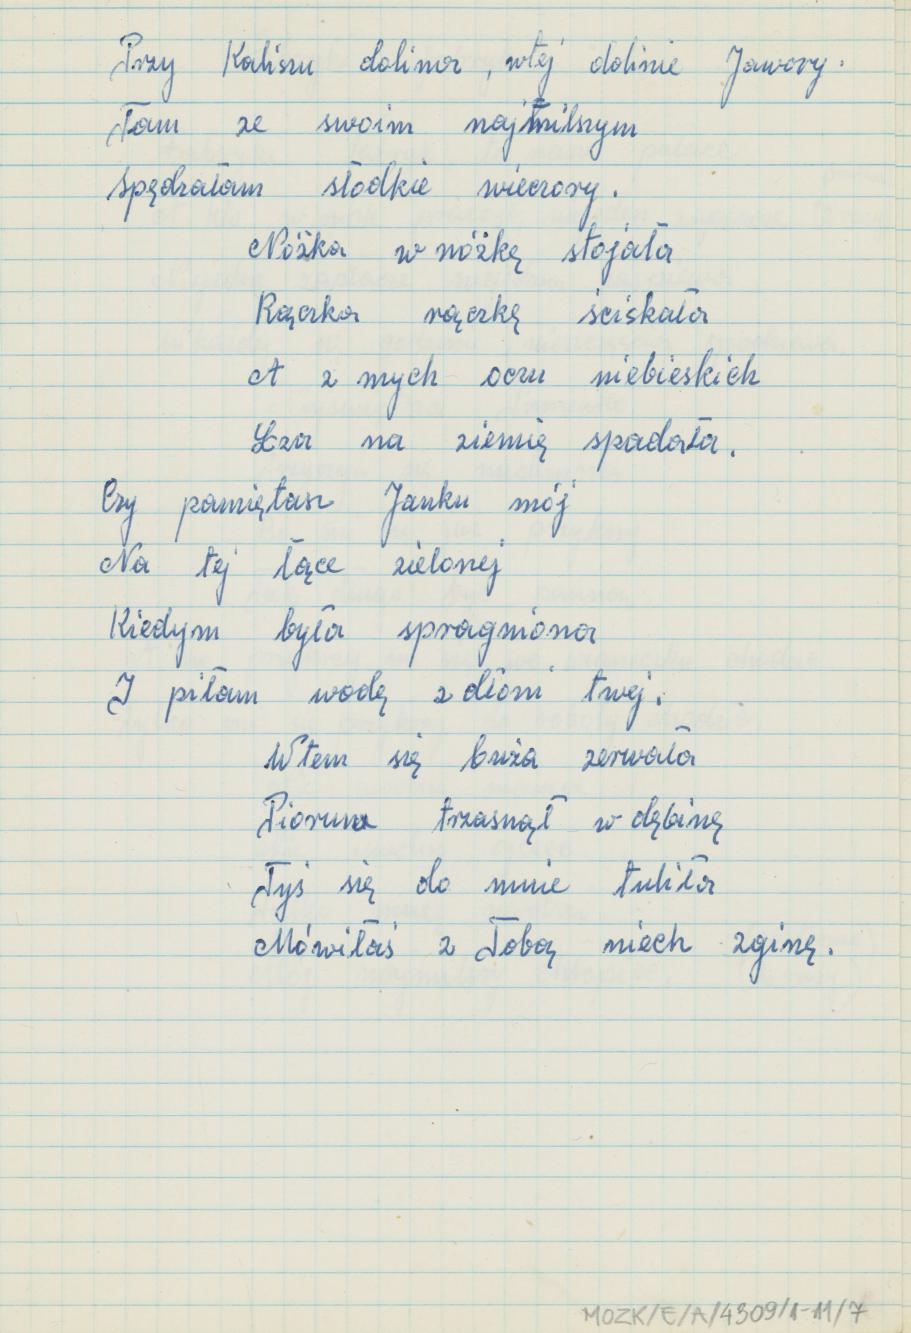 Przy Kaliszu dolina, w tej dolinie Jawory.
Tam ze swoim najmilszym
spędzałam słodkie wieczory.
Nóżka w nóżkę stojała
Rączka rączkę ściskała
A z mych oczu niebieskich
Łza na ziemię spadała.
Czy pamiętasz Janku mój
Na tej łące zielonej
Kiedym była spragniona
I piłam wodę z dłoni twej.
Wtem się buża zerwała
Piorun trzasnął w dębinę
Tyś się do mnie tuliła
Mówiłaś z Tobą niech zginę.
MOZK/E/A/4309/1-11/7